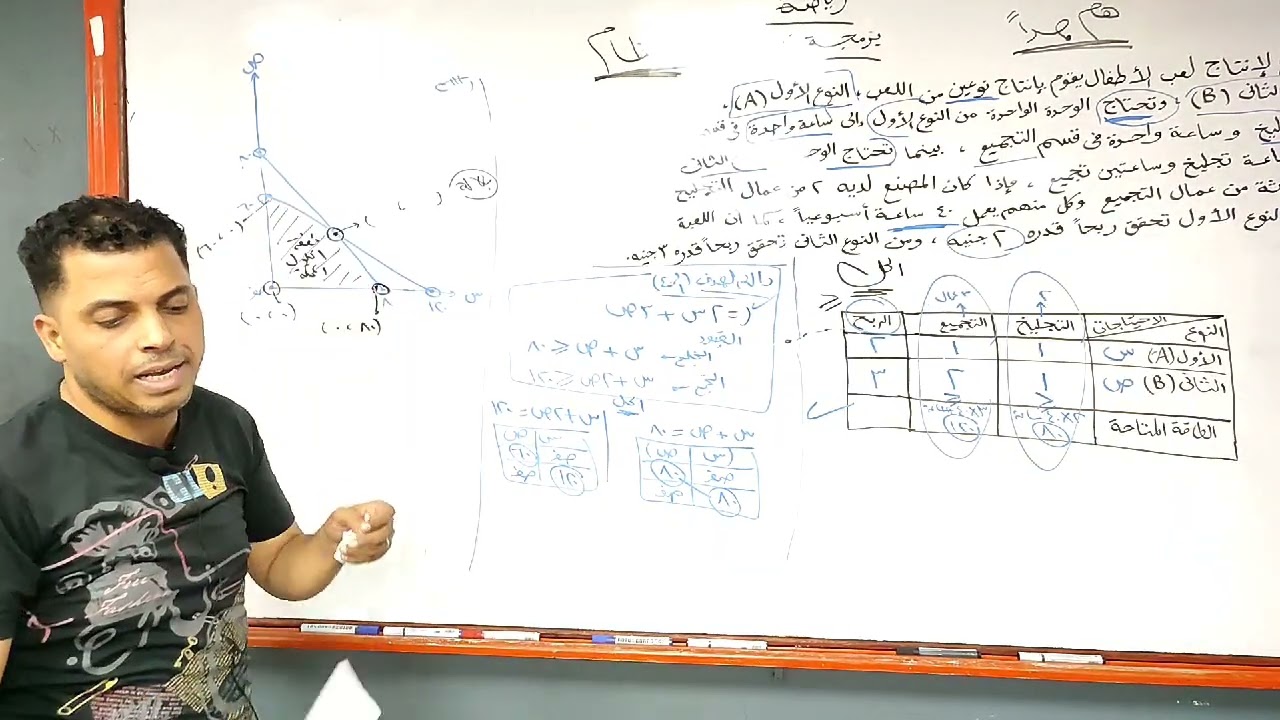 هام جداً
رياضة
برمجة
لإنتاج لعب الأطفال يقوم بإنتاج نوعين من اللعب ، النوع الأول (A) ،
الثانى (B) ، وتحتاج الوحدة الواحدة من النوع الأول إلى ساعة واحدة فى
وساعة واحدة فى قسم التجميع ، بينما تحتاج الوح الثانى
تجليخ وساعتين تجميع ، فإذا كان المصنع لديه ٢ من عمال التجليخ
من عمال التجميع وكل منهم يعمل ٤٠ ساعة أسبوعياً ، كما أن اللعبة
النوع الأول تحقق ربحاً قدره ٢ جنيه ، ومن النوع الثانى تحقق ربحاً قدره ٣ جنيه.
الحل
٢
٣ عمال
النوع الاحتياجات التجليخ التجميع الربح
الأول (A) س ١ ١ ٢
الثانى (B) ص ١ ٢ ٣
≥ ≥
الطاقة المتاحة ٨٠ ١٢٠
دالة الهدف
ر = ٢س + ٣ص
القيود
س + ص ≥ ٨٠
س + ٢ص ≥ ١٢٠
الحل
س + ص = ٨٠
س ص
صفر ٨٠
٨٠ صفر
س + ٢ص = ١٢٠
س ص
صفر ٦٠
١٢٠ صفر
ص
٨٠
٦٠
(٦٠،٠)
منطقة
الحلول
س
١٢٠
٨٠
(٠،٠)
(٠،٨٠)